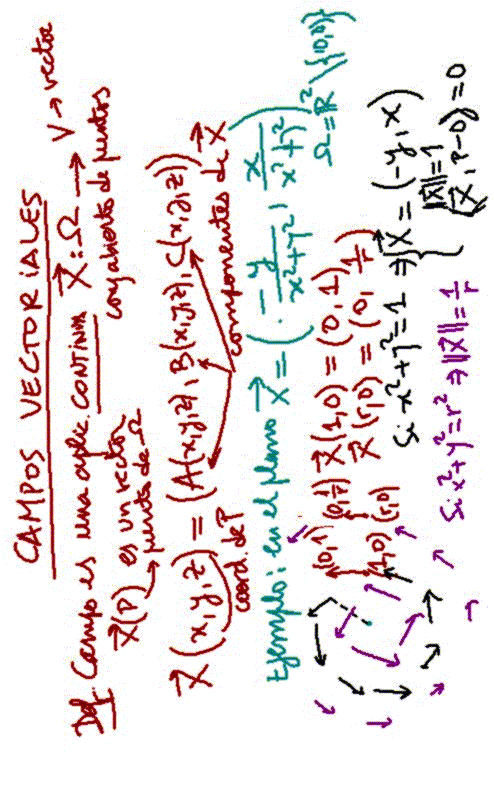 CAMPOS VECTORIALES
Def. Campo es una aplic. CONTINUA X⃗ : Ω → V → vector
conj abierto de puntos
X⃗(P) es un vector
→ punto de Ω
X⃗(x,y,z) = (A(x,y,z), B(x,y,z), C(x,y,z))
coord. de P
componentes de X⃗
Ejemplo: en el plano X⃗ = (-y/(x²+y²), x/(x²+y²))
Ω = ℝ² \ {(0,0)}
(0,1) (0,1/r) X⃗(1,0) = (0,1)
(1,0) (r,0) X⃗(r,0) = (0, 1/r)
Si x²+y²=1 ⇒ { X⃗ = (-y, x)
‖X⃗‖ = 1
⟨X⃗, P-0⟩ = 0
Si x²+y²=r² ⇒ ‖X⃗‖ = 1/r